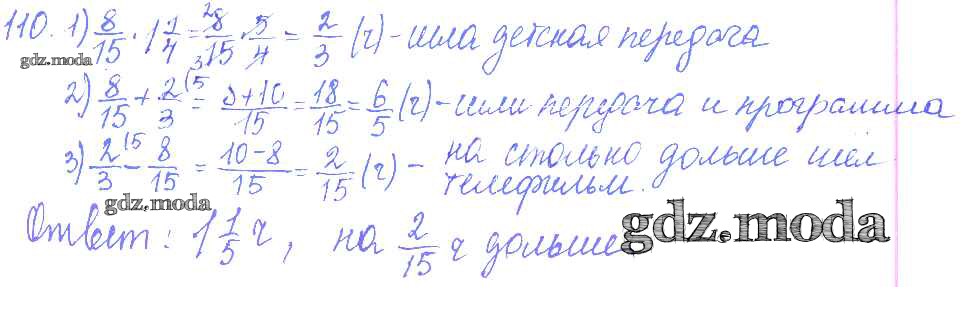 110. 1) 8/15 · 1 1/4 = 8/15 · 5/4 = 2/3 (ч) - шла детская передача
gdz.moda
2) 8/15 + 2/3 (5 = 8+10/15 = 18/15 = 6/5 (ч) - шли передача и программа
3) 2/3 (5 - 8/15 = 10-8/15 = 2/15 (ч) - на столько дольше шёл
телефильм.
gdz.moda
Ответ: 1 1/5 ч, на 2/15 ч дольше
gdz.moda